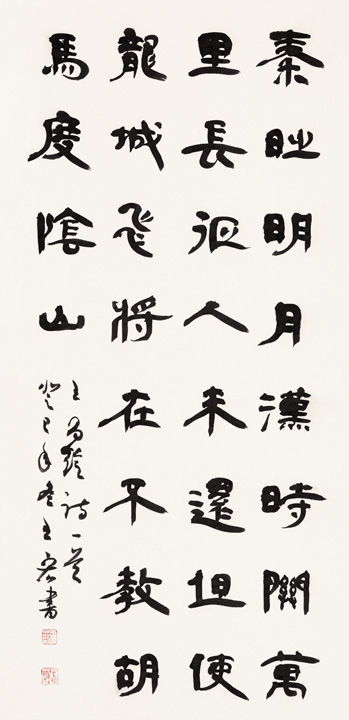 秦時明月漢時關萬
里長征人未還但使
龍城飛將在不教胡
馬度陰山
王昌齡詩一首
癸巳年冬王書